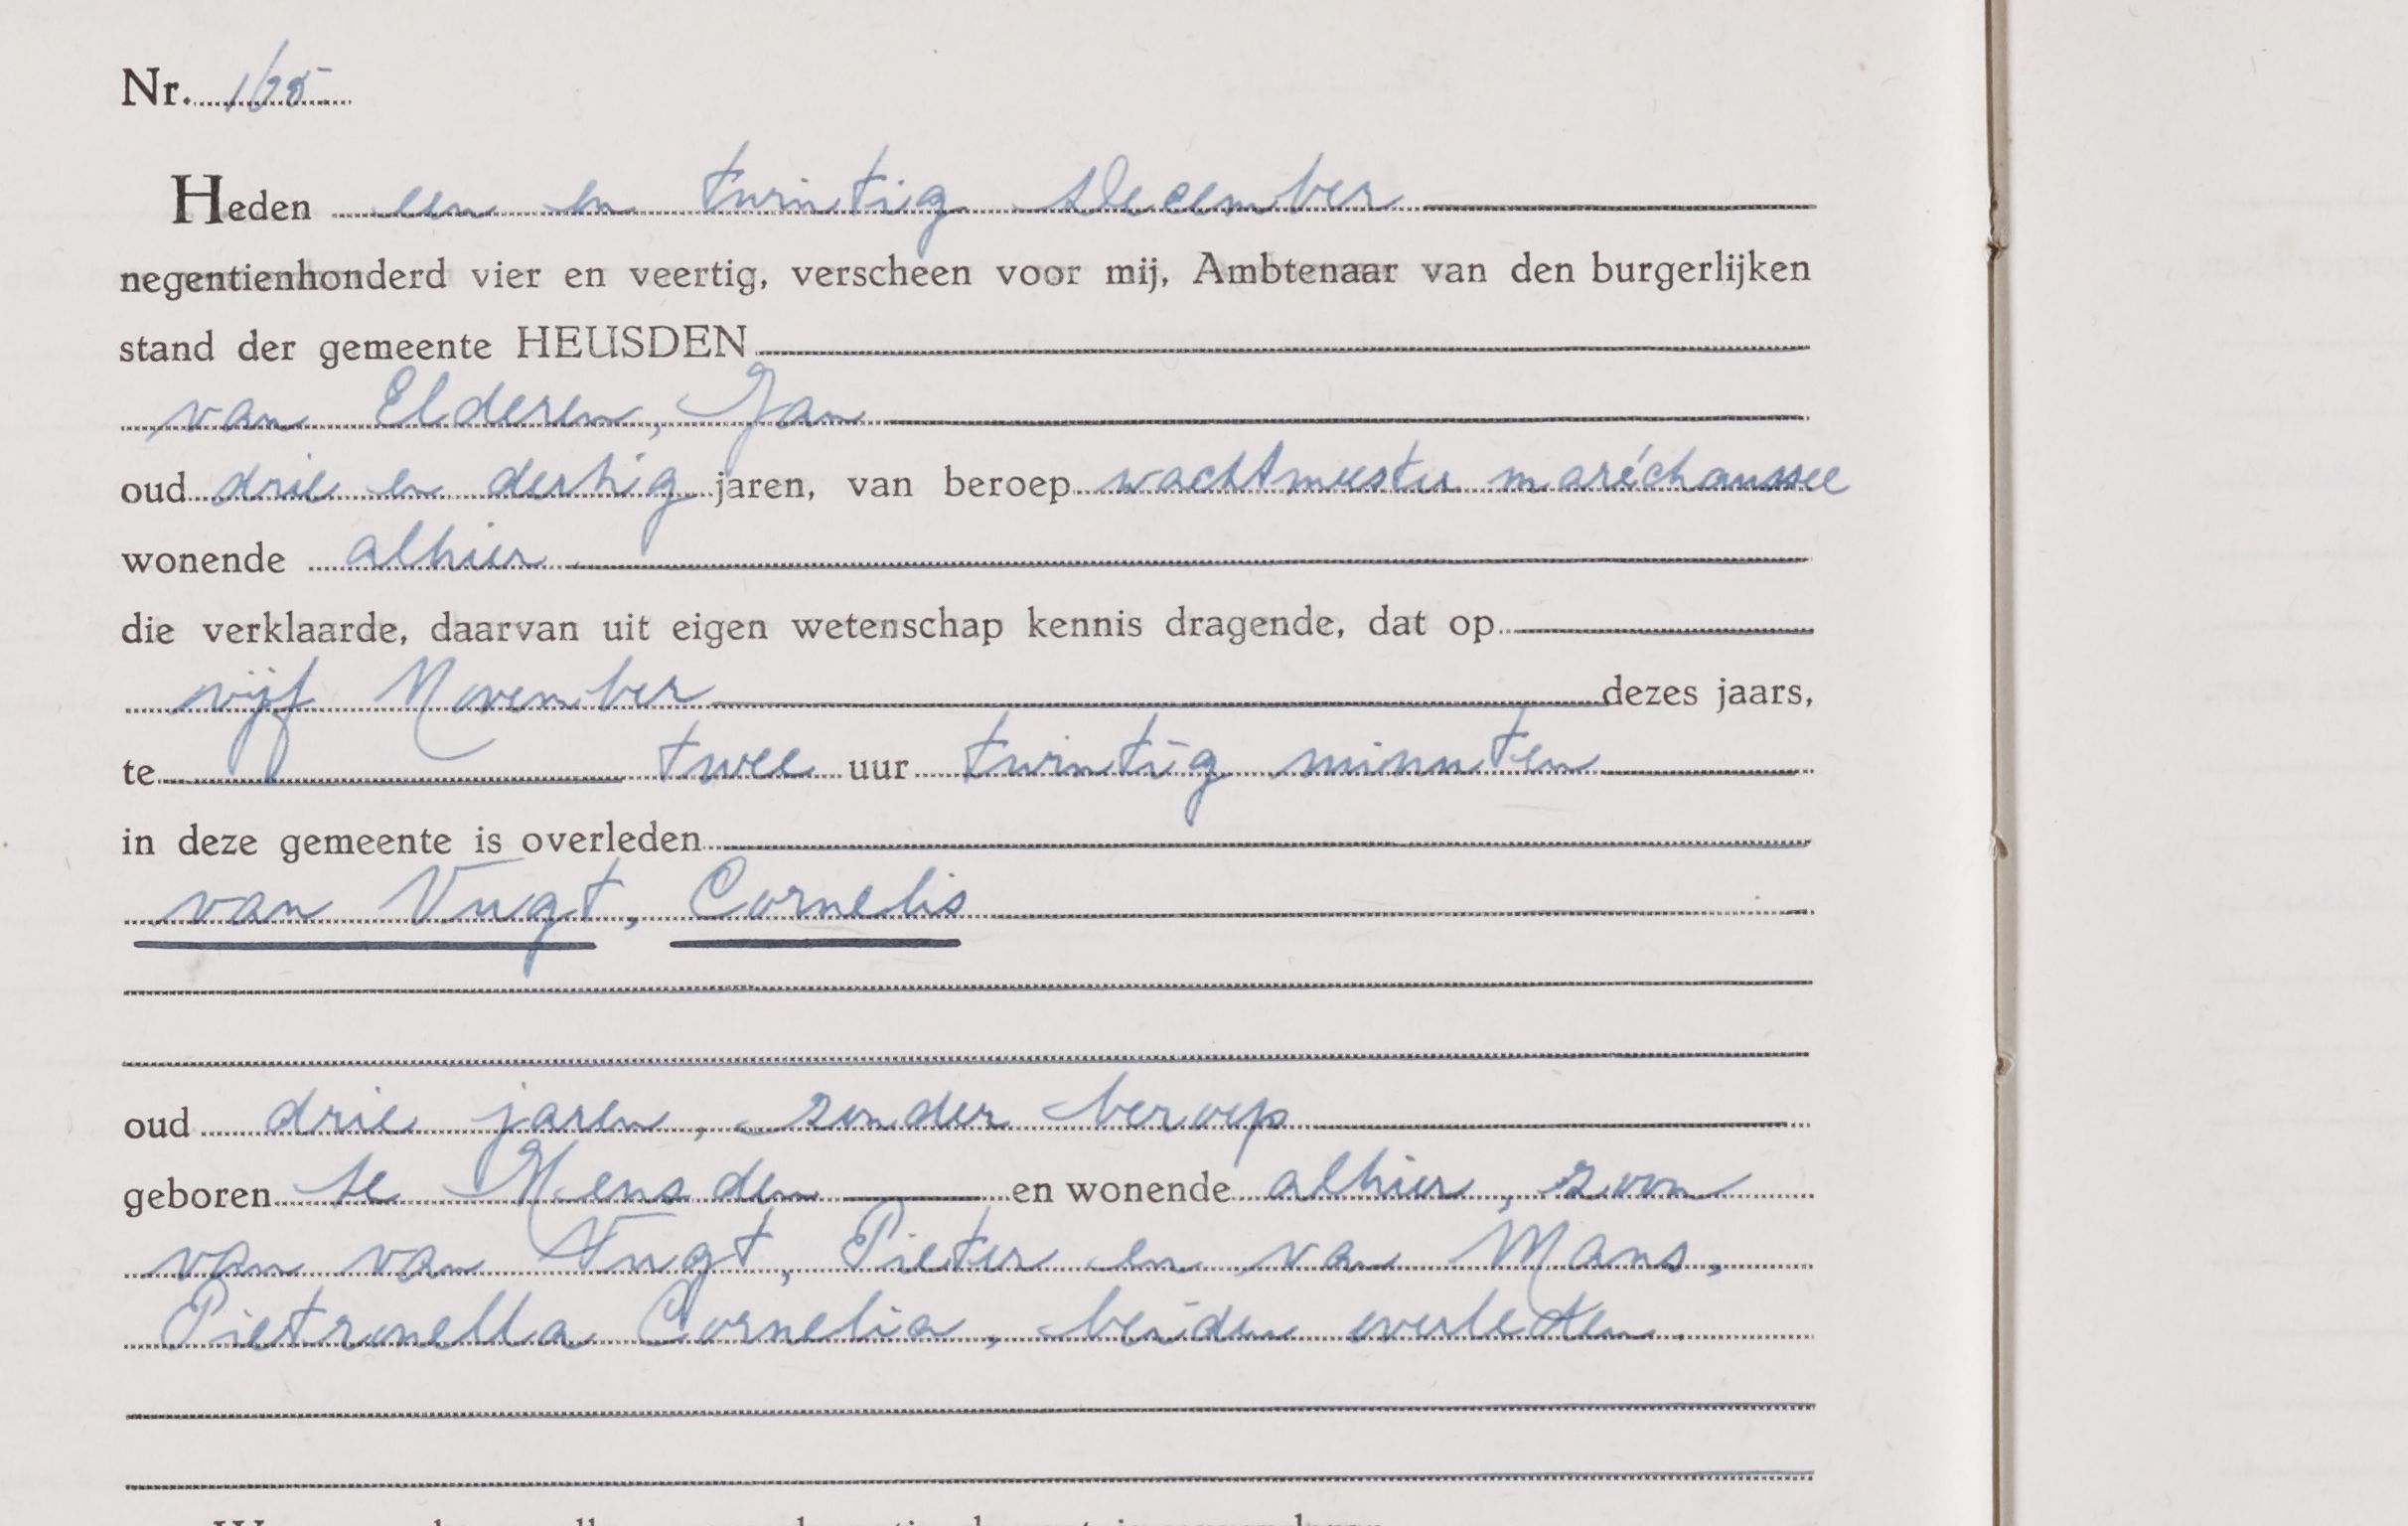 Nr. 165
Heden een en twintig December
negentienhonderd vier en veertig, verscheen voor mij, Ambtenaar van den burgerlijken
stand der gemeente HEUSDEN
van Elderen, Jan
oud drie en dertig jaren, van beroep wachtmeester maréchaussee
wonende alhier
die verklaarde, daarvan uit eigen wetenschap kennis dragende, dat op
vijf November dezes jaars,
te twee uur twintig minuten
in deze gemeente is overleden
van Vugt, Cornelis
oud drie jaren, zonder beroep
geboren te Heusden en wonende alhier, zoon
van van Vugt, Pieter en van Mans,
Pietronella Cornelia, beiden overleden.